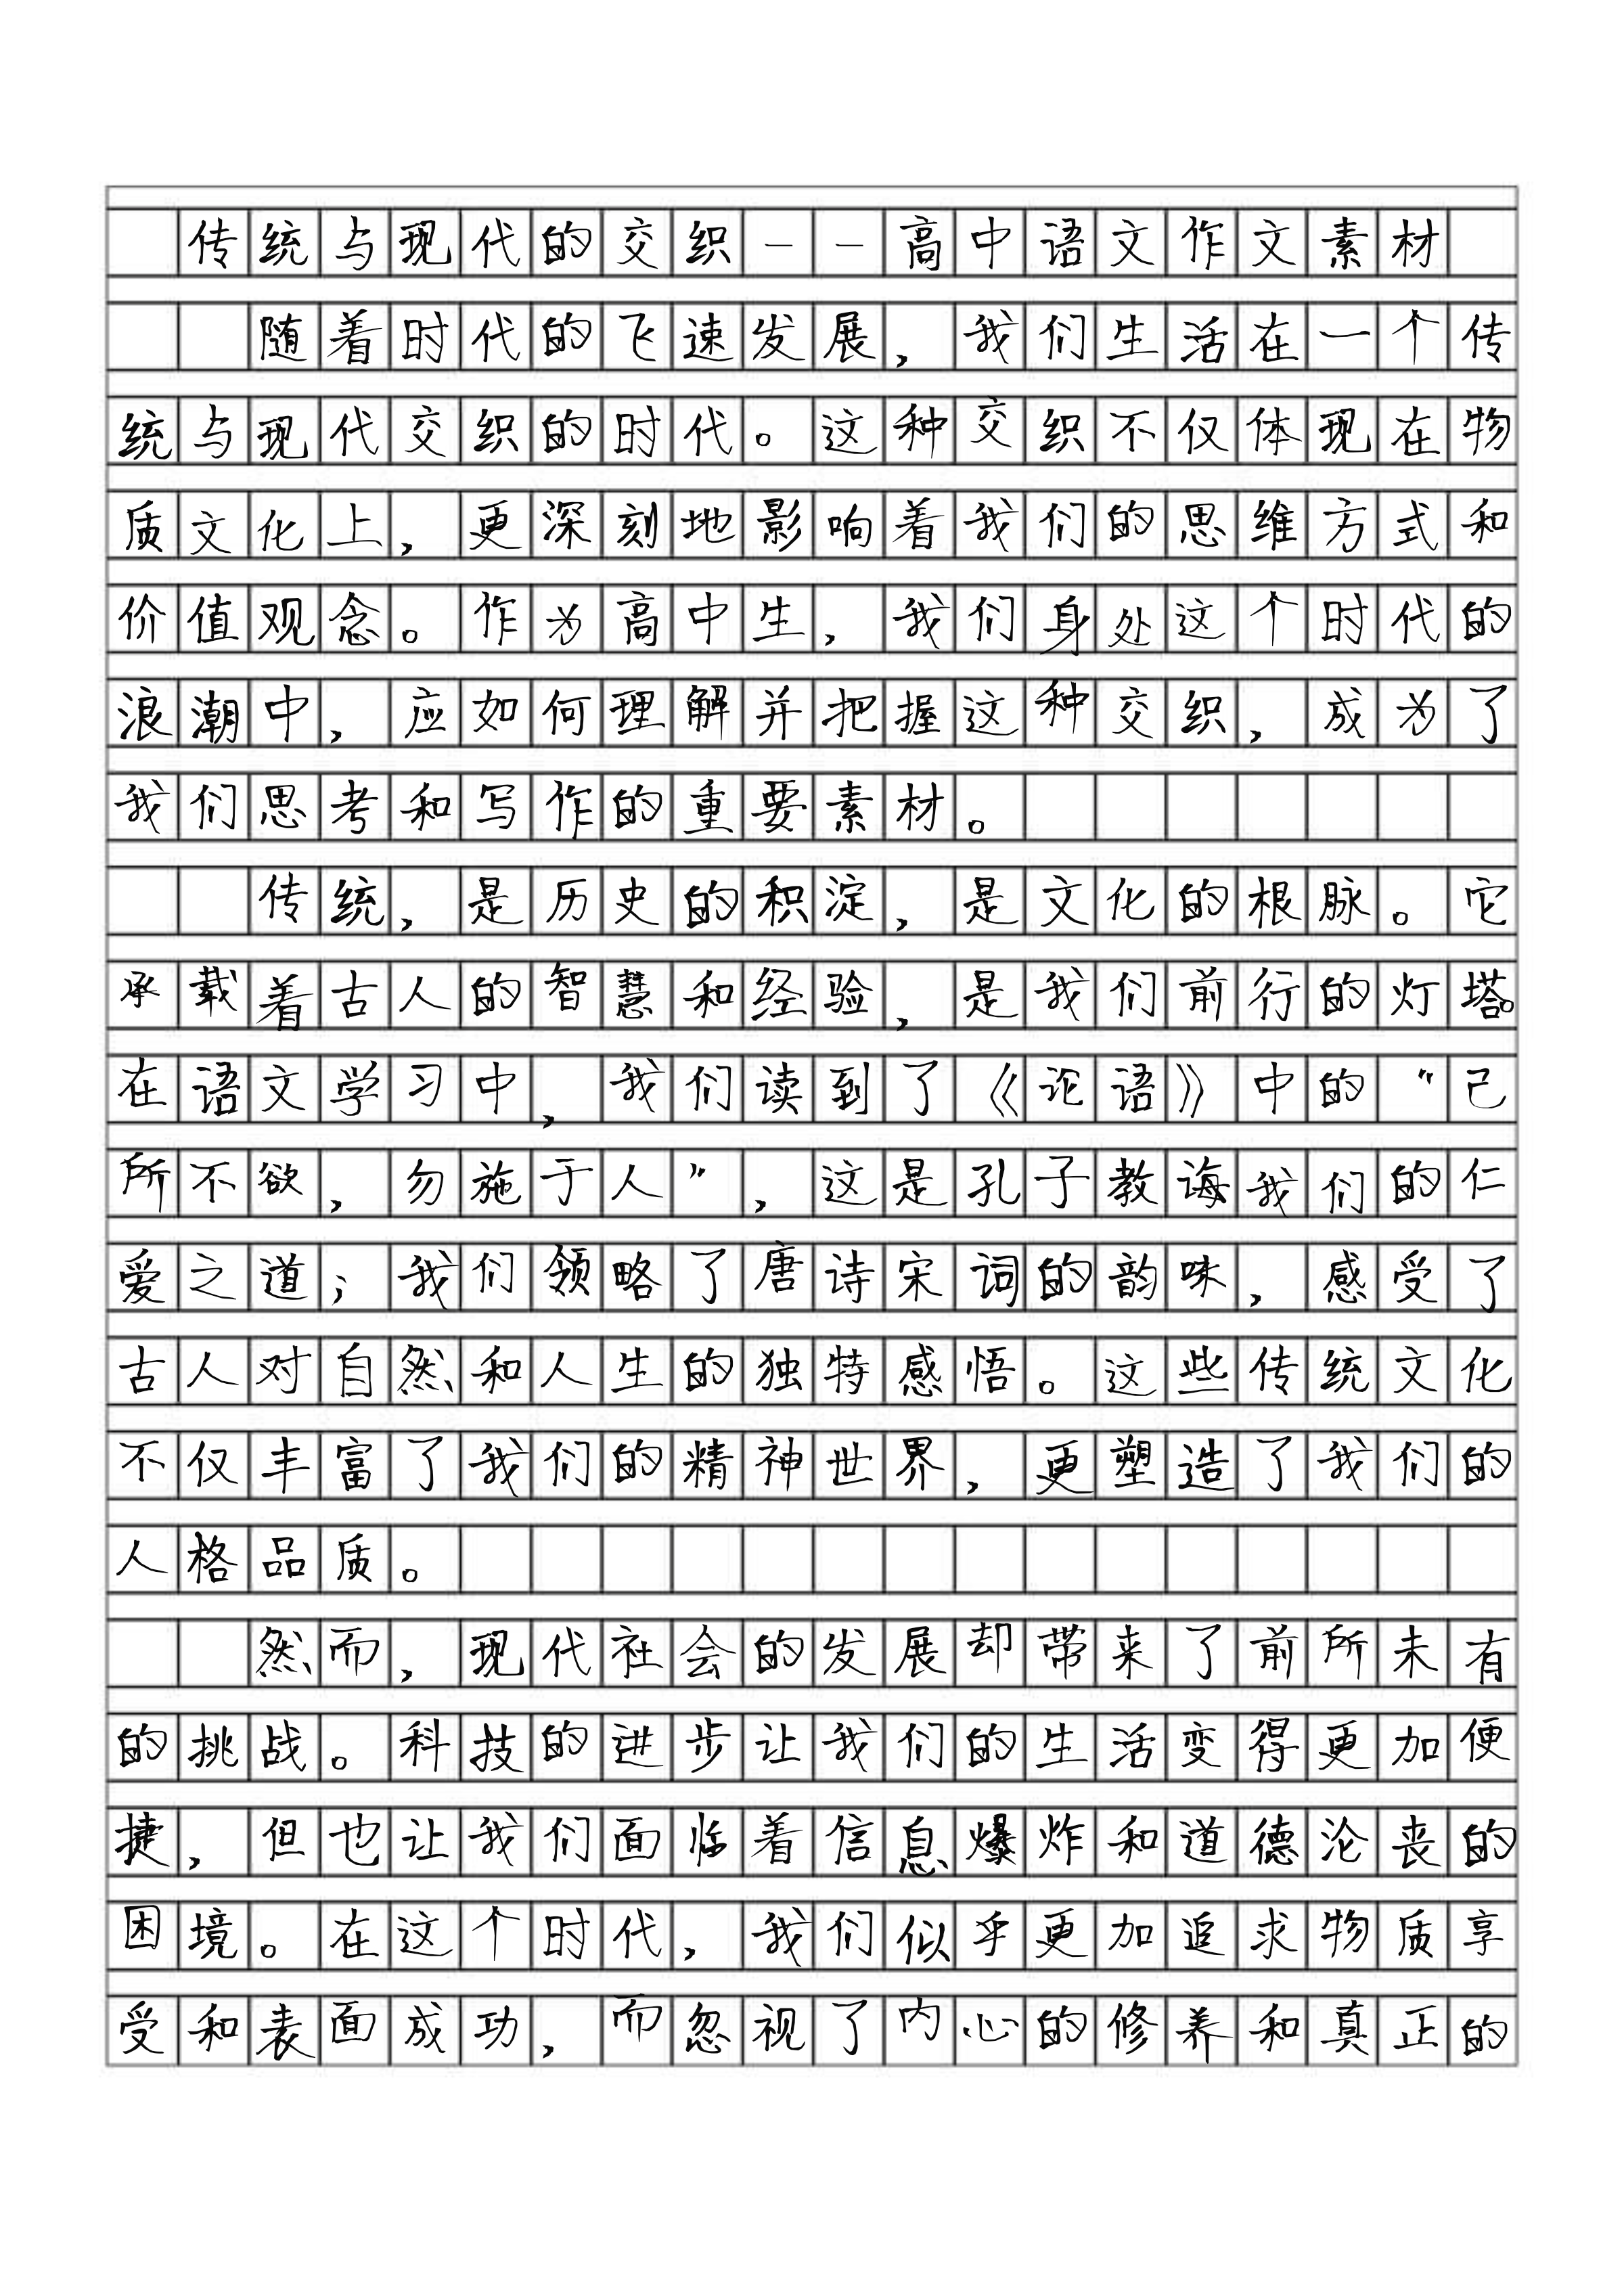 传统与现代的交织——高中语文作文素材
随着时代的飞速发展，我们生活在一个传
统与现代交织的时代。这种交织不仅体现在物
质文化上，更深刻地影响着我们的思维方式和
价值观念。作为高中生，我们身处这个时代的
浪潮中，应如何理解并把握这种交织，成为了
我们思考和写作的重要素材。
传统，是历史的积淀，是文化的根脉。它
承载着古人的智慧和经验，是我们前行的灯塔。
在语文学习中，我们读到了《论语》中的“己
所不欲，勿施于人”，这是孔子教诲我们的仁
爱之道；我们领略了唐诗宋词的韵味，感受了
古人对自然和人生的独特感悟。这些传统文化
不仅丰富了我们的精神世界，更塑造了我们的
人格品质。
然而，现代社会的发展却带来了前所未有
的挑战。科技的进步让我们的生活变得更加便
捷，但也让我们面临着信息爆炸和道德沦丧的
困境。在这个时代，我们似乎更加追求物质享
受和表面成功，而忽视了内心的修养和真正的